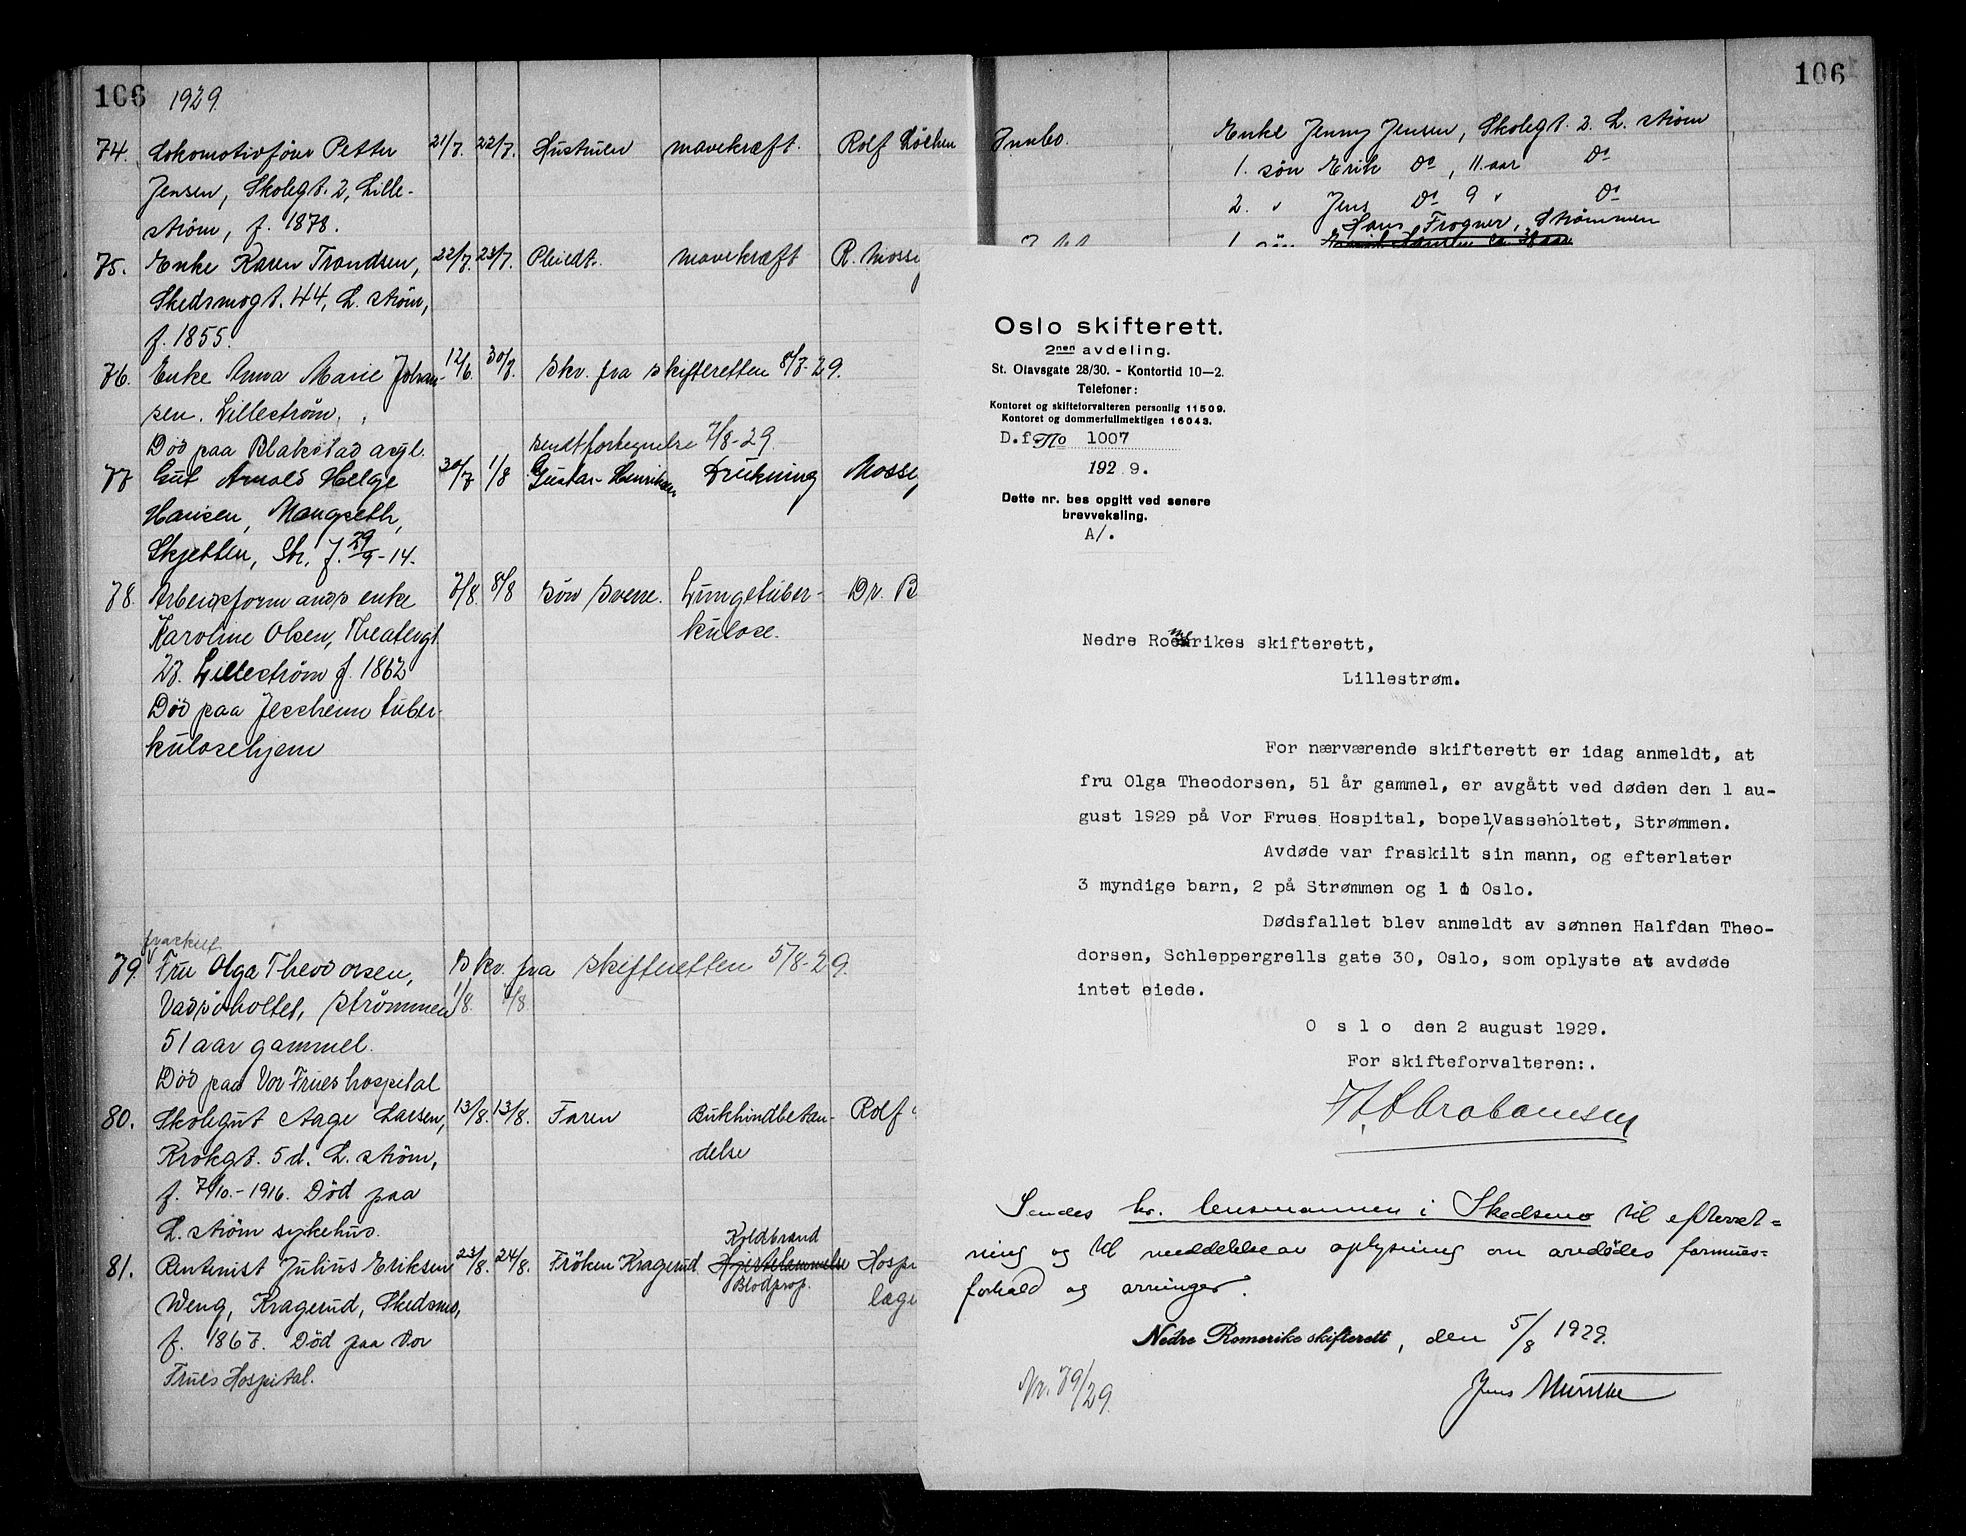 106 1929.
74. Lokomotivfører Petter 21/7. 22/7. Hustruen mavekræft. Rolf
Jensen, Skolegt. 2, Lille-
strøm, f. 1878.
75. Enke Karen Trondsen, 22/7. 23/7. Pleiedt. mavekræft R. Mosse
Skedsmogt. 44, L. strøm,
f. 1855.
76. Enke Anna Marie Johan- 12/6. 30/7. Skv. fra skifteretten 8/7-29.
sen. Lillestrøm.
Død paa Blakstad asyl. sendt fortegnelse 7/8-29
77 Gut Arnold Helge 30/7 1/8 Gustav Henriksen Drukning Mosse
Hansen, Mangseth,
Skjetten, Str. f. 29/9-14.
78. Arbeidsformands enke 7/8. 8/8 søn Sverre. Lungetuber- Dr. B
Karoline Olsen, Theatergt. kulose.
27. Lillestrøm f. 1862
Død paa Jessheim tuber-
kulosehjem
fraskilt
79. Fru Olga Theodorsen, Skv. fra skifteretten 5/8-29.
Vasseholtet, Strømmen 1/8.
51 aar gammel.
Død paa Vor Frues hospital
80. Skolegut Aage Larsen, 13/8. 13/8. Faren Bukhindbetæn- Rolf
Krokgt. 5 d. L. strøm, delse
f. 7/10.-1916. Død paa
L. strøm sykehus.
Koldbrand
81. Rentenist Julius Eriksen 23/8. 24/8. Frøken Kragerud Hjertelammelse Hospi
Blodprop.
Weng, Kragerud, Skedsmo, læge
f. 1867. Død paa Vor
Frues Hospital.
106
Innbo. Enke Jenny Jensen, Skolegt. 2. L. strøm
1. søn Erik Do, 11. aar Do
2. " Jens Do 9 " Do
Hans Frogner, Strømmen
1. søn
Oslo skifterett.
2nen avdeling.
St. Olavsgate 28/30. - Kontortid 10—2.
Telefoner:
Kontoret og skifteforvalteren personlig 11509.
Kontoret og dommerfullmektigen 16043.
D.f No 1007
192 9.
Dette nr. bes opgitt ved senere
brevveksling.
A/.
Nedre Romerikes skifterett,
Lillestrøm.
For nærværende skifterett er idag anmeldt, at
fru Olga Theodorsen, 51 år gammel, er avgått ved døden den 1 au-
gust 1929 på Vor Frues Hospital, bopel, Vasseholtet, Strømmen.
Avdøde var fraskilt sin mann, og efterlater
3 myndige barn, 2 på Strømmen og 1 i Oslo.
Dødsfallet blev anmeldt av sønnen Halfdan Theo-
dorsen, Schleppergrells gate 30, Oslo, som oplyste at avdøde
intet eiede.
O s l o den 2 august 1929.
For skifteforvalteren:.
Abrahamsen
Sendes hr. lensmannen i Skedsmo til efterret-
ning og til meddelelse av oplysning om avdødes formues-
forhold og arvinger.
Nedre Romerike skifterett, den 5/8 1929.
Nr. 79/29.
Jens